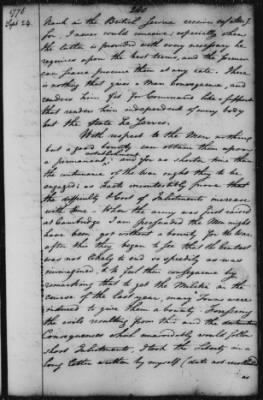 1776
Sept 24.
200
Rank in the British Service receive or asking
for. I never could conceive, especially when
the latter is provided with every necessary he
requires upon the best terms, and the former
can scarce procure them at any rate. There
is nothing that gives a Man consequence, and
renders him fit for Command like a support
that renders him independent of every body
but the State he Serves.
With respect to the Men nothing
but a good bounty can obtain them upon
a permanent establishment; and for no shorter time than
the continuance of the War ought they to be
engaged; as Facts incontestibly prove that
the difficulty & Cost of Inlistments increase
with time. When the army was first raised
at Cambridge I am persuaded the Men might
have been got without a bounty for the War:
after this they began to see that the Contest
was not likely to end so speedily as was
immagined, & to feel their consequence by
remarking that to get the Militia in the
course of the last year, many Towns were
induced to give them a bounty. Foreseeing
the evils resulting from this and the destructive
Consequences which unavoidably would follow
short Inlistments, I took the Liberty in a
long letter written by myself (date not recollected
as